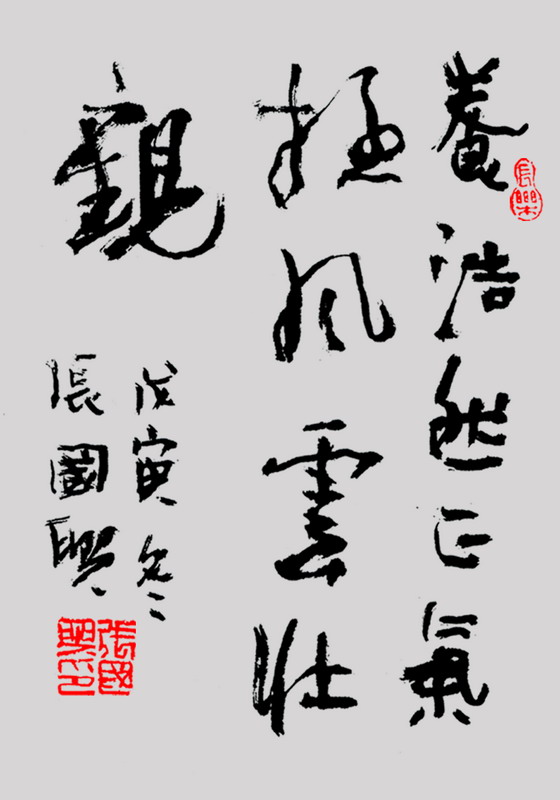 養浩然正氣
極風雲壯
觀
戊寅冬
張國興
長樂
張國興印